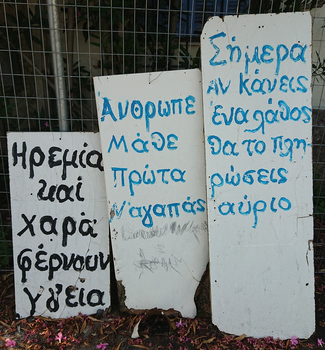 Ηρεμία
καί
χαρά
φέρνουν
υγεία
Άνθρωπε
μάθε
πρώτα
ν'αγαπάς
Σήμερα
Αν κάνεις
ένα λάθος
θα το πλη-
ρώσεις
αύριο